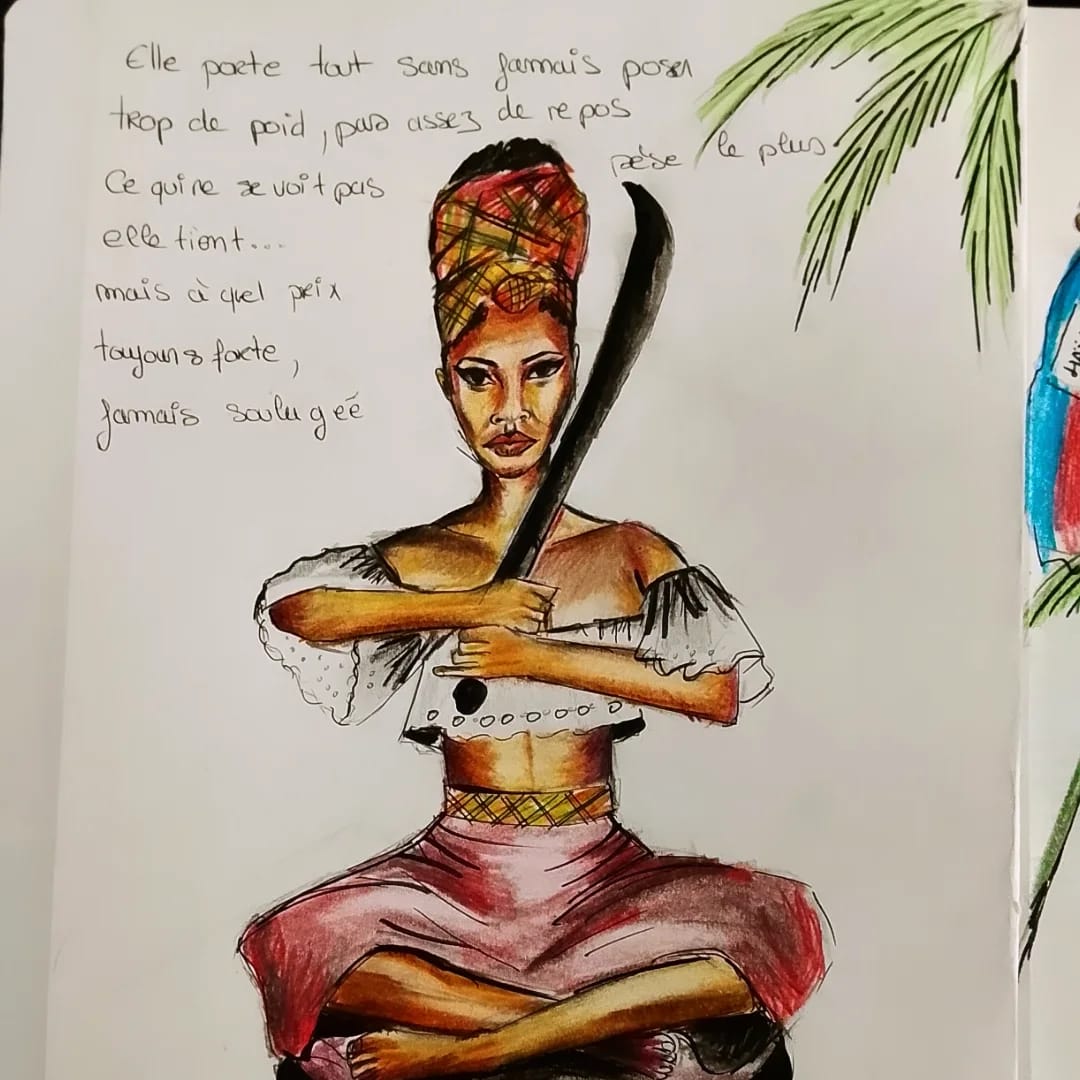 Elle porte tout sans jamais poser
trop de poid, pas assez de repos
Ce qui ne se voit pas pèse le plus
elle tient...
mais à quel prix
toujours forte,
jamais soulugéé